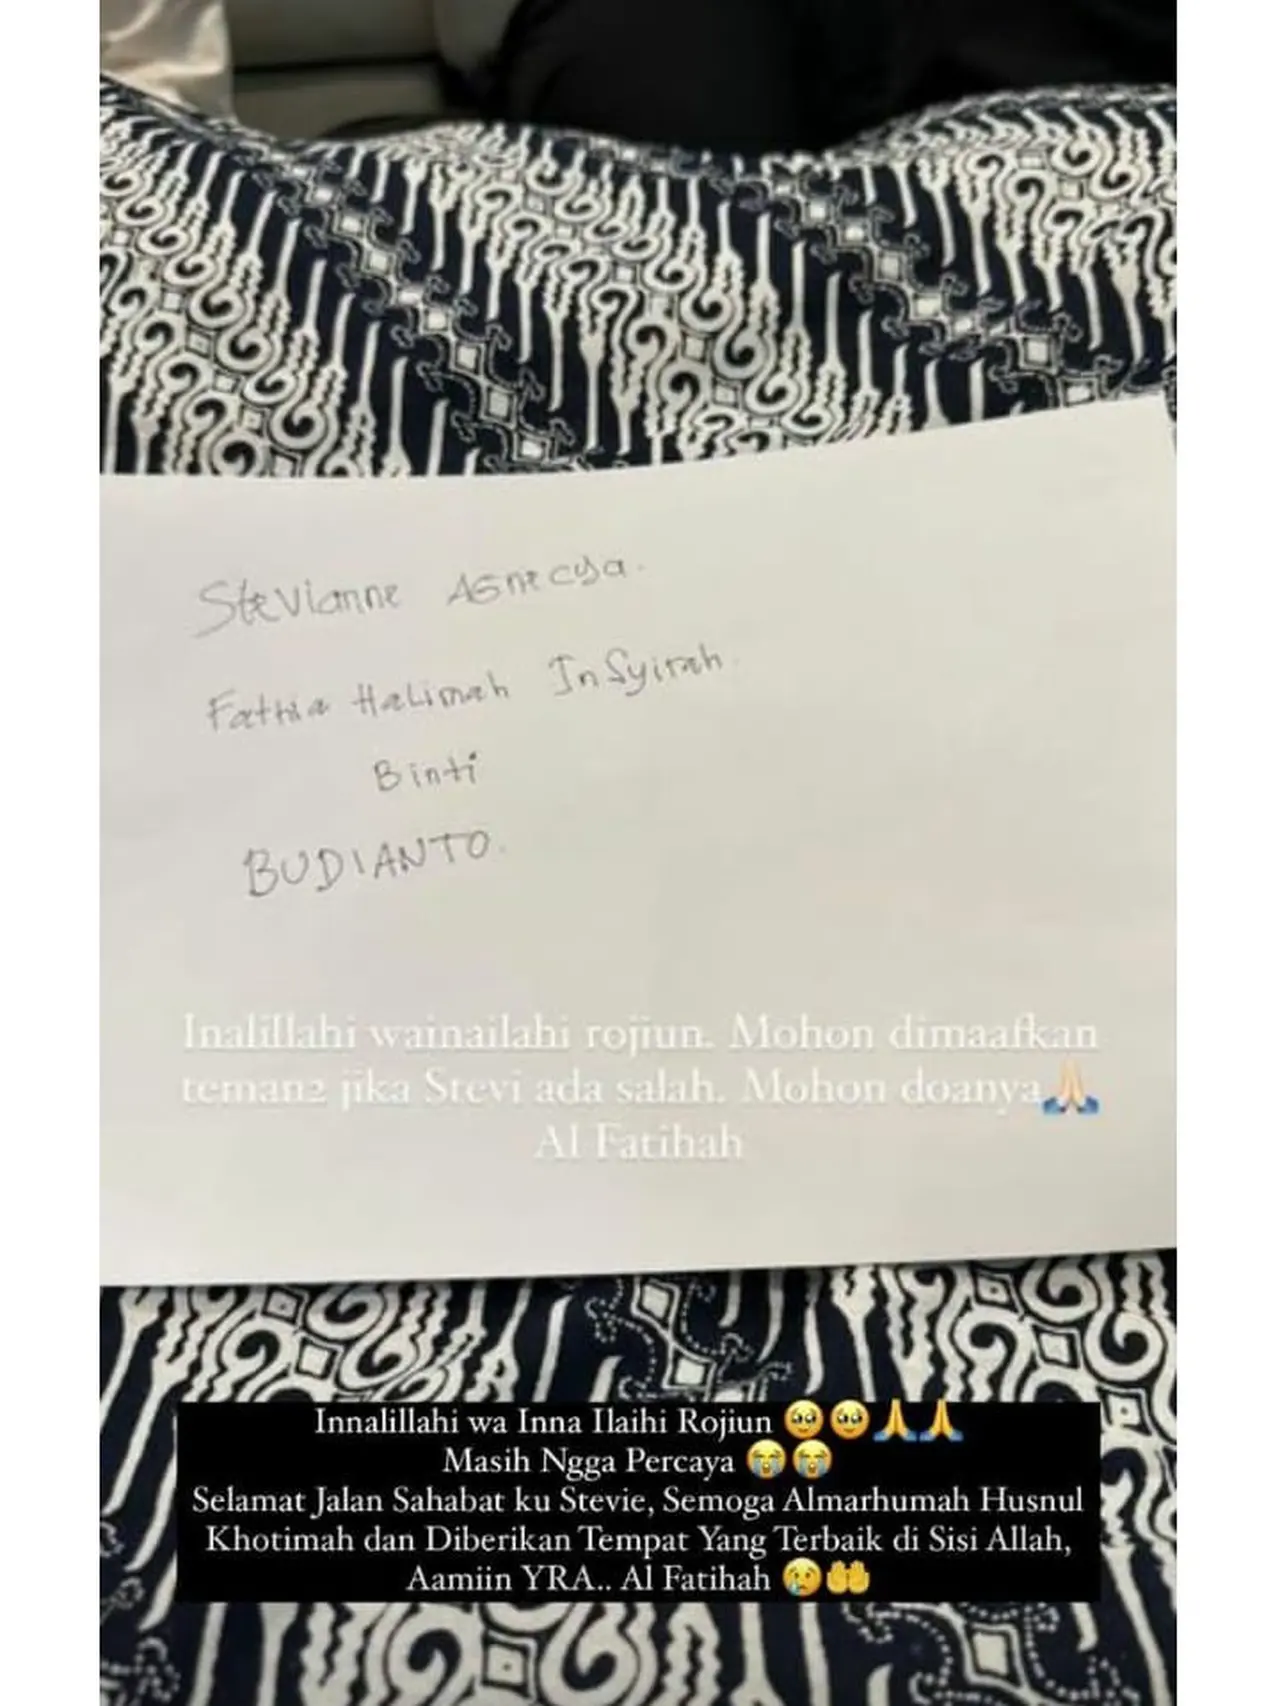 Stevianne Agnecya.
Fathia Halimah InSyirah.
Binti
BUDIANTO.
Inalillahi wainailahi rojiun. Mohon dimaafkan
teman2 jika Stevi ada salah. Mohon doanya🙏🏻
Al Fatihah
Innalillahi wa Inna Ilaihi Rojiun 🥹🥹🙏🙏
Masih Ngga Percaya 😭😭
Selamat Jalan Sahabat ku Stevie, Semoga Almarhumah Husnul
Khotimah dan Diberikan Tempat Yang Terbaik di Sisi Allah,
Aamiin YRA.. Al Fatihah 😢🤲